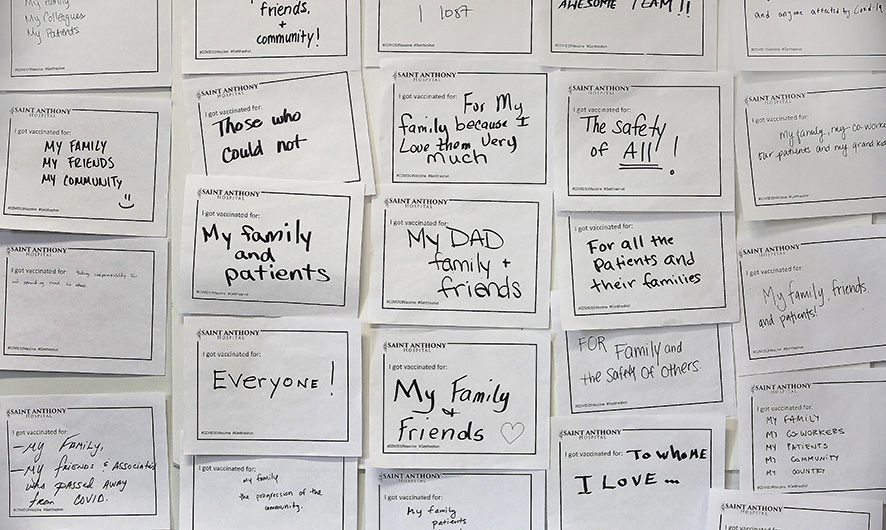 My Family
My Colleagues
My Patients
#COVID19Vaccine #Gettheshot
friends,
+
community!
#COVID19Vaccine #Gettheshot
I lost
#COVID19Vaccine #Gettheshot
AWESOME TEAM!!
#COVID19Vaccine #Gettheshot
and anyone affected by Covid-19
#COVID19Vaccine #Gettheshot
SAINT ANTHONY
HOSPITAL
I got vaccinated for:
MY FAMILY
MY FRIENDS
MY COMMUNITY
#COVID19Vaccine #Gettheshot
SAINT ANTHONY
HOSPITAL
I got vaccinated for:
Those who
could not
SAINT ANTHONY
HOSPITAL
I got vaccinated for:
For My
family because I
Love them very
much
#COVID19Vaccine #Gettheshot
SAINT ANTHONY
HOSPITAL
I got vaccinated for:
The safety
of ALL!
#COVID19Vaccine #Gettheshot
SAINT ANTHONY
HOSPITAL
I got vaccinated for:
my family, my co-worke
our patients and my grand kid
#COVID19Vaccine #Gettheshot
SAINT ANTHONY
HOSPITAL
I got vaccinated for:
My family
and
patients
#COVID19Vaccine #Gettheshot
SAINT ANTHONY
HOSPITAL
I got vaccinated for:
My DAD
family +
friends
#COVID19Vaccine #Gettheshot
I got vaccinated for:
For all the
Patients and
their families
#COVID19Vaccine #Gettheshot
SAINT ANTHONY
HOSPITAL
I got vaccinated for:
My family, friends
and patients!
#COVID19Vaccine #Gettheshot
SAINT ANTHONY
HOSPITAL
I got vaccinated for:
#COVID19Vaccine #Gettheshot
SAINT ANTHONY
HOSPITAL
I got vaccinated for:
Everyone!
#COVID19Vaccine #Gettheshot
SAINT ANTHONY
HOSPITAL
I got vaccinated for:
My Family
&
Friends ♡
#COVID19Vaccine #Gettheshot
FOR Family and
the Safety of others.
#COVID19Vaccine #Gettheshot
SAINT ANTHONY
HOSPITAL
I got vaccinated for:
MY FAMILY
MY CO-WORKERS
MY PATIENTS
MY COMMUNITY
MY COUNTRY
#COVID19Vaccine #Gettheshot
SAINT ANTHONY
HOSPITAL
I got vaccinated for:
- My Family,
- My friends & Associates
who passed away
from COVID.
#COVID19Vaccine #Gettheshot
I got vaccinated for:
my family
the progression of the
community.
SAINT ANTHONY
HOSPITAL
I got vaccinated for:
My family
patients
SAINT ANTHONY
HOSPITAL
I got vaccinated for:
TO WHOME
I LOVE ...
SAINT ANTHONY
HOSPITAL